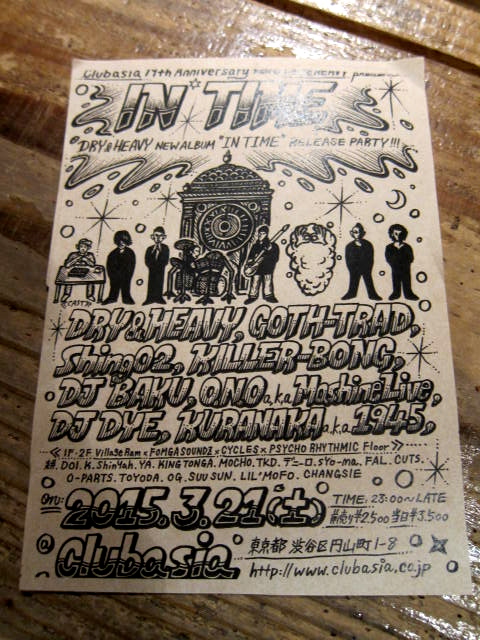 Clubasia 17th Anniversary
IN TIME
DRY&HEAVY NEW ALBUM "IN TIME" RELEASE PARTY!!!
<CAST>
DRY & HEAVY, GOTH-TRAD,
Shing02, KILLER-BONG,
DJ BAKU, QNO a.k.a MashineLive,
DJ DYE, KURANAKA a.k.a 1945,
≪1F・2F Village Ram × FOMGASOUNDZ × CYCLES × PSYCHO RHYTHMIC Floor≫
DOI. K. ShinYah. YA. KINGTONGA. MOCHO. TKD. デニーロ. sYo-ma. FAL. CUTS.
O-PARTS. TOYODA. OG. SUU SUN. LIL'MOFO. CHANGSIE
On: 2015.3.21(土) TIME: 23:00〜LATE
前売り¥2.500 当日¥3.500
@ clubasia 東京都 渋谷区円山町1-8
http://www.clubasia.co.jp